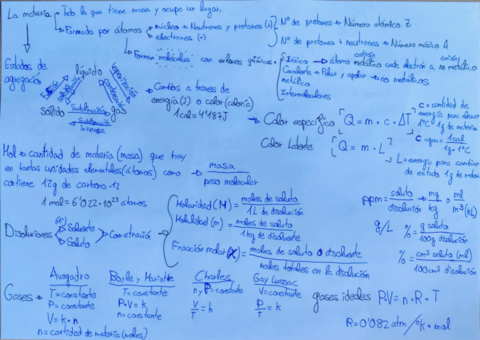 La materia → Todo lo que tiene masa y ocupa un lugar.
Formada por átomos → núcleo → Neutrones y protones (+)
electrones (-)
Nº de protones → Número atómico Z
Nº de protones + neutrones → Número másico A
Forman moléculas → con enlaces químicos
Iónico → átomo metálico cede electrón a no metálico
catión
anión
Covalente → Polar y apolar → no metálicos
metálico
Intermoleculares
Estados de agregación
líquido
sólido
gas
Sublimación
Sublimación inversa
Cambios a traves de energía (J) o calor (caloría)
1 cal = 4'187J
Calor específico
Q = m · c · ΔT
c = cantidad de energía para elevar 1ºC 1g de materia
C agua = 1cal / 1g · 1ºC
Calor Latente
Q = m · L
L = energía para cambiar de estado 1g de materia
Mol → cantidad de materia (masa) que hay
en tantas unidades elementales (átomos) como
contiene 12g de carbono 12
masa / peso molecular
1 mol = 6'022 · 10²³ átomos
Disoluciones
Disolvente
Soluto
Concentración
Molaridad (M) = moles de soluto / 1L de disolución
Molalidad (m) = moles de soluto / 1kg de disolvente
Fracción molar (X) = moles de soluto o disolvente / moles totales en la disolución
ppm = soluto / disolución → mg / kg o ml / m³ (kL)
g/L
% = g soluto / 100g disolución
% = cm³ soluto (ml) / 100cm³ disolución
Gases
Avogadro
T = constante
P = constante
V = k · n
n = cantidad de materia (moles)
Boyle y Mariotte
T = constante
P · V = k
n = constante
Charles
n, P = constante
V / T = k
Gay Lussac
V = constante
P / T = k
gases ideales P·V = n · R · T
R = 0'082 atm · l / ºK · mol